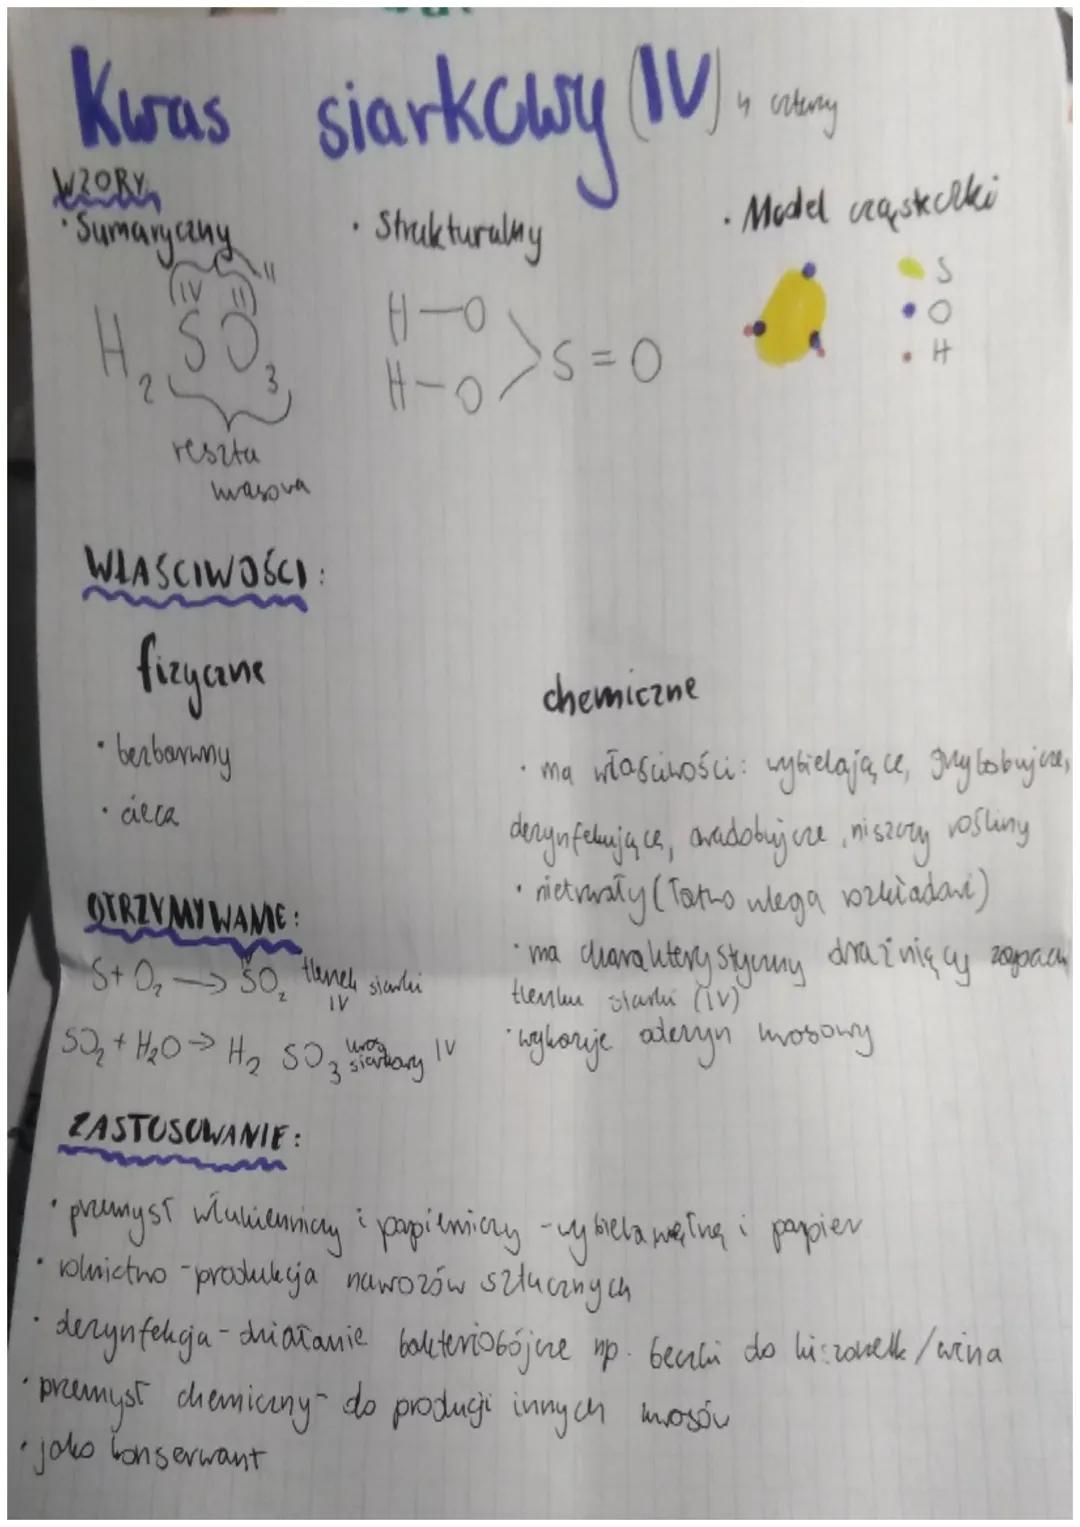 Kwas siarkowy (IV) 4 cztery
WZORY
· Sumaryczny
· Strukturalny
· Model cząsteczki
IV II II
H₂SO₃
reszta
kwasowa
H—O
H—O
S=O
S
O
H
WŁAŚCIWOŚCI:
fizyczne
· bezbarwny
· ciecz
chemiczne
· ma właściwości: wybielające, grzybobójcze,
dezynfekujące, owadobójcze, niszczy rośliny
· nietrwały (łatwo ulega rozkładowi)
· ma charakterystyczny drażniący zapach
tlenku siarki (IV)
· wykazuje odczyn kwasowy
OTRZYMYWANIE:
S + O₂ → SO₂ tlenek siarki
IV
SO₂ + H₂O → H₂SO₃ kwas siarkowy IV
ZASTOSOWANIE:
· przemysł włukienniczy i papierniczy - wybiela wełnę i papier
· rolnictwo - produkcja nawozów sztucznych
· dezynfekcja - działanie bakteriobójcze np. beczki do kiszonek/wina
· przemysł chemiczny - do producji innych kwasów
· jako konserwant